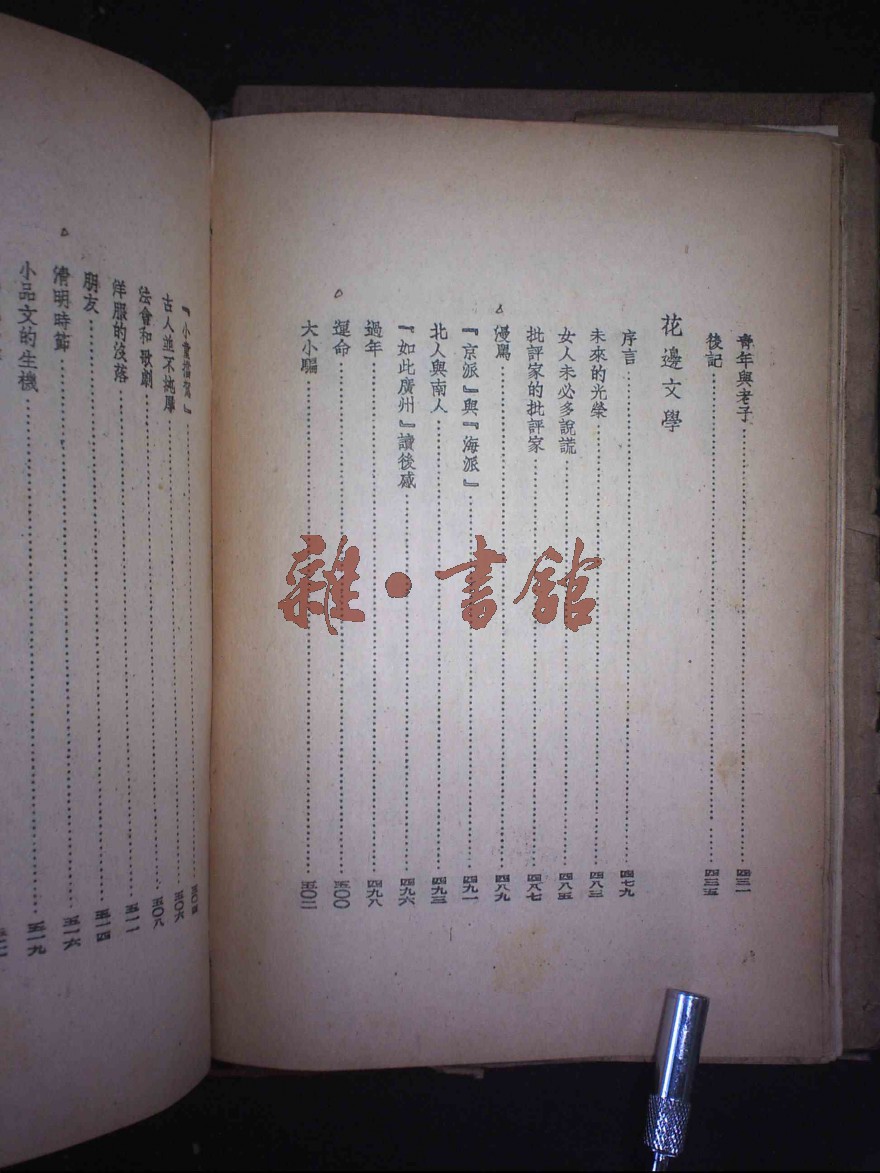 青年與老子 四三一
後記 四三五
花邊文學
序言 四七九
未來的光榮 四八三
女人未必多說謊 四八五
批評家的批評家 四八七
漫罵 四八九
『京派』與『海派』 四九一
北人與南人 四九三
『如此廣州』讀後感 四九六
過年 四九八
運命 五〇〇
大小騙 五〇二
『小童擋駕』 五〇四
古人並不純厚 五〇六
法會和歌劇 五〇八
洋服的沒落 五一一
朋友 五一四
清明時節 五一六
小品文的生機 五一九
雜·書館